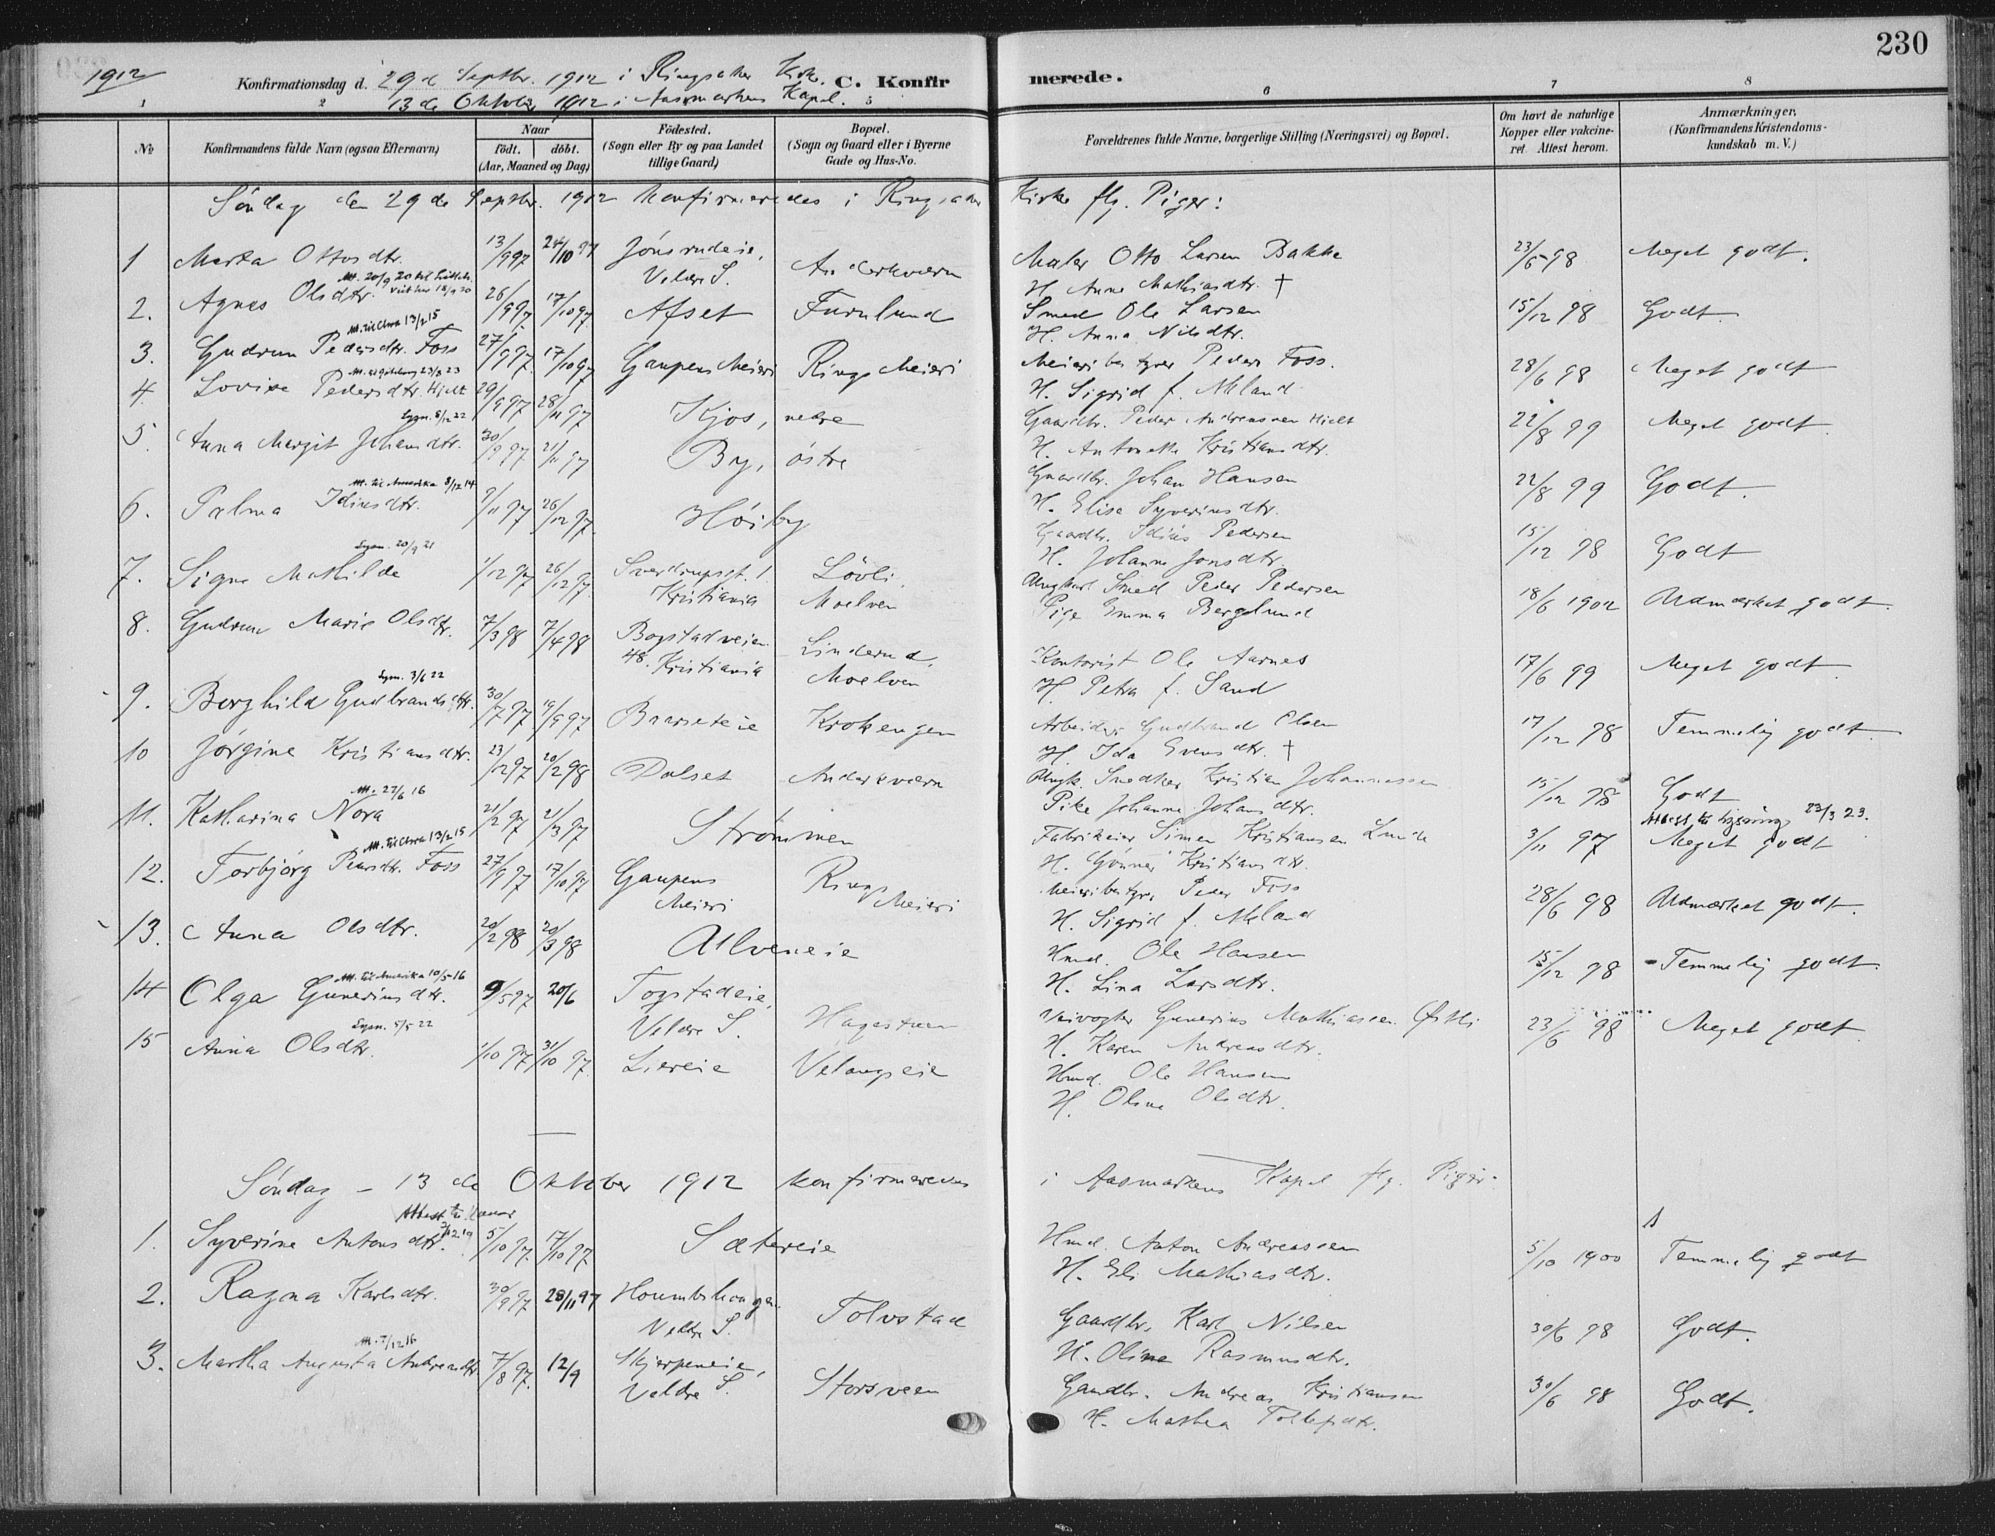 230
1912
Konfirmationsdag d. 29de Septbr. 1912 i Ringsaker Kirke. C. Konfirmerede.
13de Oktober 1912 i Aasmarkens Kapel.
1 2 5 6 7 8
No Konfirmandens fulde Navn (ogsaa Efternavn) Naar født. døbt. (Aar, Maaned og Dag) Födested. (Sogn eller By og paa Landet tillige Gaard) Bopæl. (Sogn og Gaard eller i Byerne Gade og Hus-No. Forældrenes fulde Navne, borgerlige Stilling (Næringsvei) og Bopæl. Om havt de naturlige Kopper eller vakcineret. Attest herom. Anmærkninger, (Konfirmandens Kristendomskundskab m. V.)
Söndag den 29de Septbr. 1912 konfirmeredes i Ringsaker Kirke flg. Piger:
1 Marta Ottosdtr. 13/9 97 24/10 97 Jönsrudeie, Veldre S. Anderkværn Maler Otto Larsen Bakke 23/6 98 Meget godt.
H. Anne Mathiasdtr. †
2. Agnes Olsdtr. 26/9 97 17/10 97 Afset Furulund Smed Ole Larsen 15/12 98 Godt.
H. Anna Nilsdtr.
M. til Chra 13/2 15
3. Gudrun Pedersdtr. Foss 27/9 97 17/10 97 Gaupen Meieri Rings Meieri Meieribestyrer Peder Foss. 28/6 98 Meget godt
H. Sigrid f. Mæland
M. til Göteborg 23/3 23
4. Lovise Pedersdtr. Hjelt 29/9 97 28/11 97 Kjos, nedre Gaardbr. Peder Andreassen Hjelt 22/8 99 Meget godt.
H. Antonette Kristiansdtr.
Lysn. 8/12 22
5. Anna Margit Johansdtr. 30/9 97 21/11 97 By, östre Gaardbr. Johan Hansen 22/8 99 Godt.
H. Elise Syverinsdtr.
M. til Amerika 8/12 14
6. Palma Idinsdtr. 9/11 97 26/12 97 Höiby Gaardbr. Idius Pedersen 15/12 98 Godt
H. Johanne Jonsdtr.
Lysn. 20/9 21
7. Signe Mathilde 1/12 97 26/12 97 Sverdrupsgt. 1. Kristiania Lövli, Moelven Ungkarl Smed Peder Pedersen 18/6 1902 Udmærket godt.
Pige Emma Berglund
8. Gudrun Marie Olsdtr. 7/3 98 7/4 98 Bogstadveien 48. Kristiania Linderud, Moelven Kontorist Ole Aarnes 17/6 99 Meget godt.
H. Petra f. Sand
Lysn. 3/6 22
9. Borghild Gudbrandsdtr. 30/7 97 19/9 97 Baarseteie Krokengen Arbeider Gudbrand Olsen 17/12 98 Temmelig godt.
H. Ida Evensdtr. †
10 Jörgine Kristiansdtr. 23/12 97 20/2 98 Dalset Anderkværn Ungk. Snedker Kristian Johannessen 15/12 98 Godt
Pike Johanne Johansdtr.
M. 22/6 16
11. Katharina Nora 21/2 97 21/3 97 Strömmen Fabrikeier Simen Kristiansen Lunde 3/11 97 Meget godt
Attest til lysning 23/3 23.
H. Gunner Kristiansdtr.
M. til Chra 13/2 15
12. Torbjörg Pedersdtr. Foss 27/9 97 17/10 97 Gaupen Meieri Rings Meieri Meieribestyr. Peder Foss 28/6 98 Udmærket godt.
H. Sigrid f. Mæland
13. Anna Olsdtr. 20/2 98 20/3 98 Alveneie Hmd. Ole Hansen 15/12 98 Temmelig godt.
H. Lina Larsdtr.
M. til Amerika 10/5-16
14 Olga Gunerinsdtr. 9/5 97 20/6 Togstadeie, Veldre S. Hagestuen Veivogter Gunerius Mathiassen Østli 23/6 98 Meget godt.
H. Karen Andreasdtr.
Lysn. 5/5 22
15 Anna Olsdtr. 1/10 97 31/10 97 Liereie Velangseie Hmd. Ole Hansen
H. Oline Olsdtr.
Söndag – 13de Oktober 1912 konfirmeredes i Aasmarkens Kapel flg. Piger:
1. Syverine Antonsdtr. 5/10 97 17/10 97 Sætereie Hmd. Anton Andreassen 5/10 1900 Temmelig godt
H. Eli Mathiasdtr.
2. Ragna Karlsdtr. 30/9 97 28/11 97 Veldre S. Tolvstad Gaardbr. Karl Nilsen 30/6 98 Godt.
H. Oline Rasmusdtr.
M. 7/12 16
3. Martha Augusta Andreasdtr. 7/8 97. 12/9 Skjerpeneie, Veldre S. Storsveen Gaardbr. Andreas Kristiansen 30/6 98 Godt.
H. Mathea Tollefsdtr.